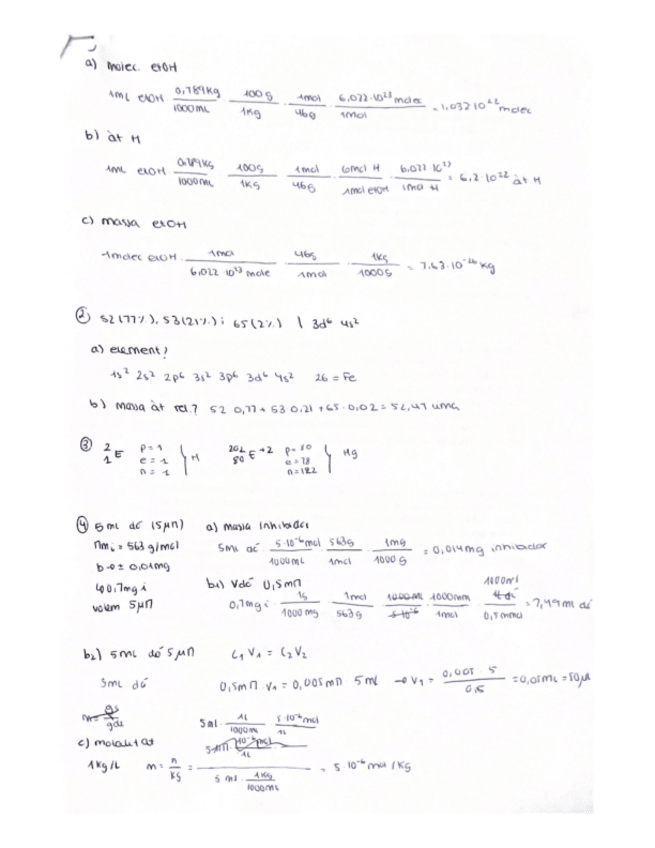 a) molec. etOH
1mL etOH 0,789Kg/1000mL · 100g/1Kg · 1mol/46g · 6,022·10²³ molec/1mol = 1,032·10²² molec
b) àt H
1mL etOH 0,789Kg/1000mL · 100g/1Kg · 1mol/46g · 6mol H/1mol etOH · 6,022·10²³/1mol H = 6,2·10²² àt H
c) massa etOH
1molec etOH · 1mol/6,022·10²³ molec · 46g/1mol · 1Kg/1000g = 7,63·10⁻²⁶ Kg
② 52 (77%), 53 (21%) i 65 (2%) | 3d⁶ 4s²
a) element?
1s² 2s² 2p⁶ 3s² 3p⁶ 3d⁶ 4s² 26 = Fe
b) massa àt rel.? 52·0,77 + 53·0,21 + 65·0,02 = 52,47 uma
③ ²₁E p=1 e=1 n=1 } H ²⁰²₈₀E⁺² p=80 e=78 n=122 } Hg
④ 5mL dé (5μM) a) massa inhibidor
Mmi = 563 g/mol 5mL dé · 5·10⁻⁶mol/1000mL · 563g/1mol · 1mg/1000g = 0,014mg inhibidor
b-o ± 0,01mg
0,7mg i b₁) Vdé 0,5mM
volem 5μM 0,7mg i · 1g/1000mg · 1mol/563g · 1000mM/1mol · 1000ml/0,5mmol = 7,49ml dé
b₂) 5mL dé 5μM C₁V₁ = C₂V₂
5mL dé 0,5mM · V₁ = 0,005mM 5mL → V₁ = 0,005·5/0,5 = 0,05mL = 50μL
c) molalitat 5ml · 1L/1000mL · 5·10⁻⁶mol/1L
1Kg/L m = n/Kg = / 5ml · 1Kg/1000mL = 5·10⁻⁶ mol/Kg